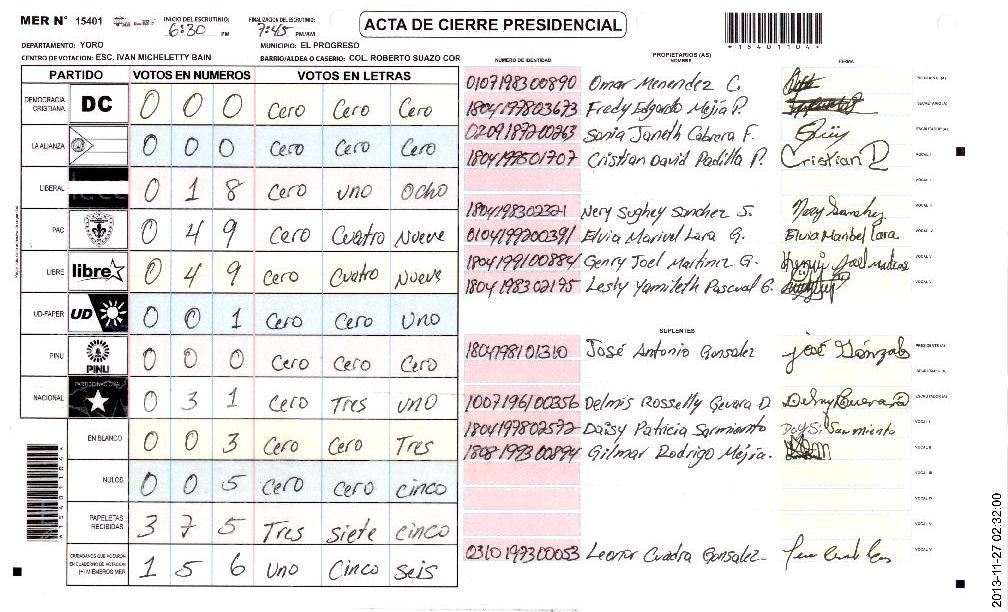 MER N° 15401
INICIO DEL ESCRUTINIO: 6:30 PM
FINALIZACION DEL ESCRUTINIO: 7:45 PM/AM
ACTA DE CIERRE PRESIDENCIAL
*15401104*
DEPARTAMENTO: YORO
MUNICIPIO: EL PROGRESO
CENTRO DE VOTACION: ESC. IVAN MICHELETTY BAIN
BARRIO/ALDEA O CASERIO: COL. ROBERTO SUAZO COR
PARTIDO VOTOS EN NUMEROS VOTOS EN LETRAS
DEMOCRACIA CRISTIANA DC 0 0 0 Cero Cero Cero
LA ALIANZA 0 0 0 Cero Cero Cero
LIBERAL 0 1 8 Cero uno Ocho
PAC 0 4 9 Cero Cuatro Nueve
LIBRE libre 0 4 9 Cero Cuatro Nueve
UD-FAPER UD 0 0 1 Cero Cero Uno
PINU PINU 0 0 0 Cero Cero Cero
NACIONAL PARTIDO NACIONAL 0 3 1 Cero Tres uno
EN BLANCO 0 0 3 Cero Cero Tres
NULOS 0 0 5 Cero Cero cinco
PAPELETAS RECIBIDAS 3 7 5 Tres siete cinco
CIUDADANOS QUE VOTARON EN CUADERNO DE VOTACION (+) MIEMBROS MER 1 5 6 uno Cinco seis
*15401104*
PROPIETARIOS (AS)
NUMERO DE IDENTIDAD NOMBRE FIRMA
0107198300890 Omar Menendez C. PRESIDENTE (A)
1804197803673 Fredy Edgardo Mejia P. SECRETARIO (A)
0209187200263 Sonia Janeth Cabrera F. ESCRUTADOR (A)
1804199501707 Cristian David Padilla P. Cristian P VOCAL I
1804198302321 Nery Sughey Sanchez S. Nery Sanchez
0104199200391 Elvia Marivel Lara G. Elvia Maribel Lara
1804199100884 Genry Joel Martinez G.
1804198302195 Lesby Yamileth Pascual G.
SUPLENTES
1804198101310 José Antonio Gonsalez josé Gonzalz PRESIDENTE (A)
SECRETARIO (A)
1007196100356 Delmis Rosselly Gevara D ESCRUTADOR (A)
1804197802572 Daisy Patricia Sarmiento Daysi Sarmiento VOCAL I
1808199300894 Gilmar Rodrigo Mejia. VOCAL II
VOCAL III
VOCAL IV
VOCAL V
0310199300053 Leonor Cuadra Gonsalez
2013-11-27 02:32:00